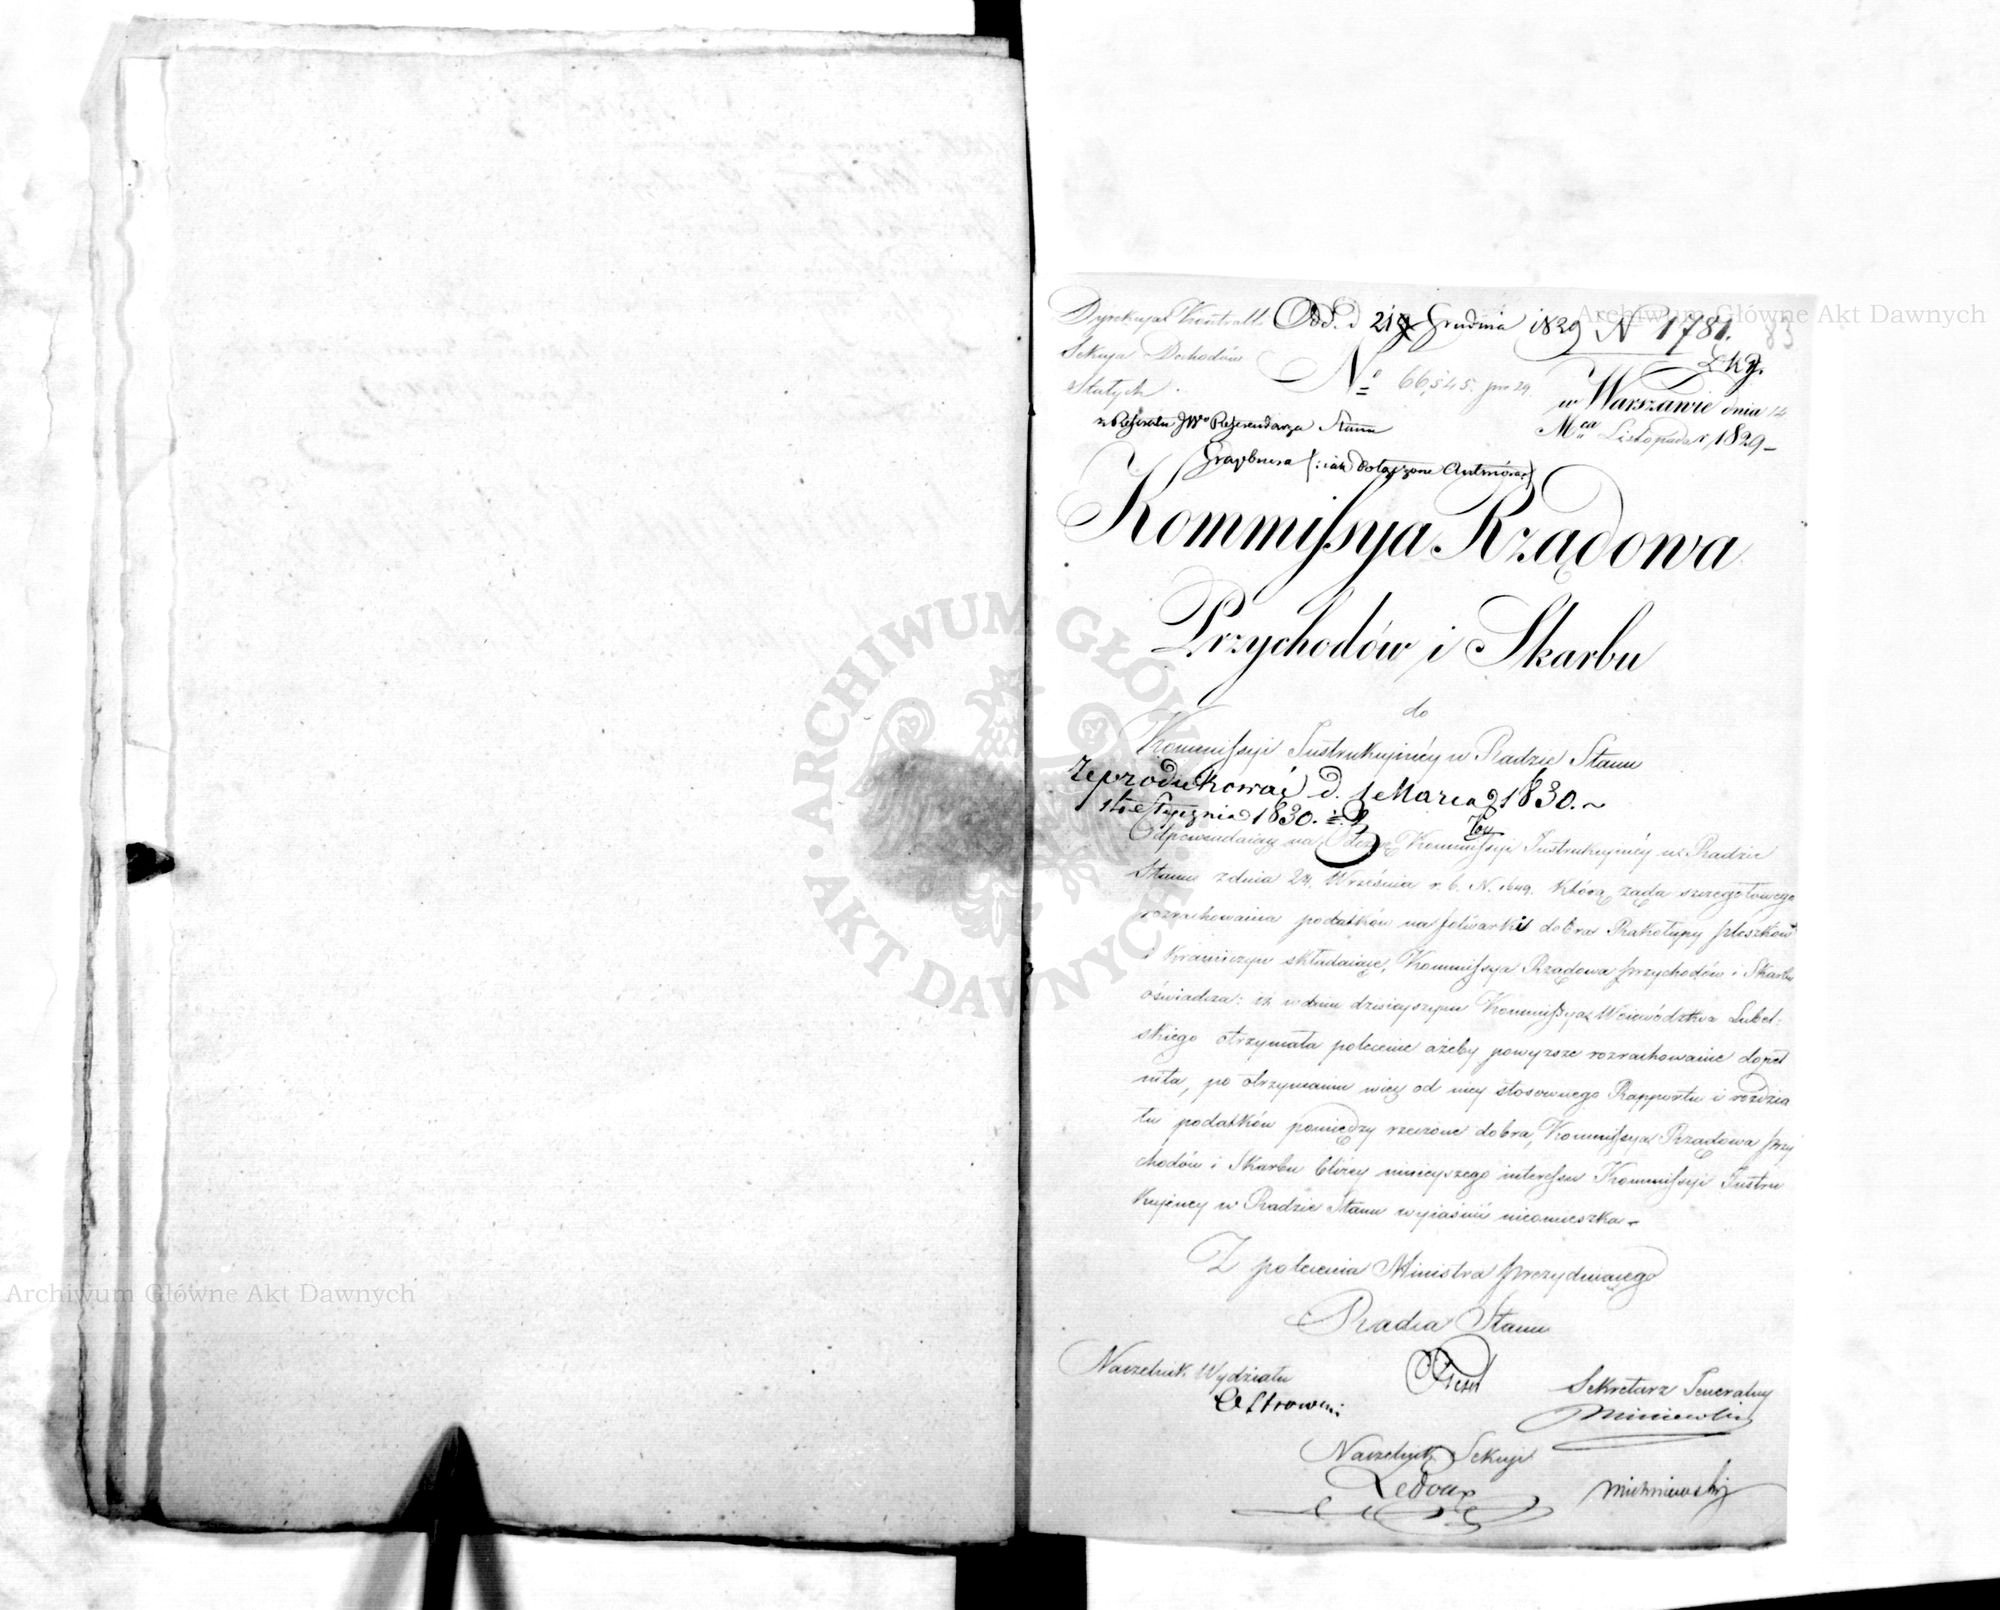 Dyrekcya Kontroll.
Odd. d 21 Grudnia 1829 N 1781.
83
Sekcya Dochodów
Stałych.
No 66,545. pro 29.
w Warszawie dnia 14
Mca Listopada r. 1829
z Referatu JWo Referendarza Stanu
Kommissya Rządowa
Przychodów i Skarbu
do
Kommissyi Instrukcyiney w Radzie Stanu
Zeprodukować d. 1 Marca 1830.
Stycznia 1830.
Odpowiadaiąc na Odezwę Kommissyi Instrukcyiney w Radzie
Stanu z dnia 24 Września r. b. N. 1649. którą żąda szczegółowego
rozrachowania podatków na folwarki dobra Rakołupy Pleszków
i Kraniczyn składaiące, Kommissya Rządowa Przychodów i Skarbu
oświadcza: iż w dniu dzisieyszym Kommissya Woiewództwa Lubel-
skiego otrzymała polecenie ażeby powyższe rozrachowanie dopeł
niła, po otrzymaniu więc od niey stosownego Rapportu i rozdzia
łu podatków pomiędzy rzeczone dobra, Kommissya Rządowa Przy
chodów i Skarbu bliżey ninieyszego interessu Kommissyi Instru
kcyiney w Radzie Stanu wyiaśnić nieomieszka.
Z polecenia Ministra Prezyduiącego
Radca Stanu
Naczelnik Wydziału
Ostrowski
Sekretarz Generalny
Naczelnik Sekcyi
Ledoux
Michniewski
Archiwum Główne Akt Dawnych
Archiwum Główne Akt Dawnych
ARCHIWUM GŁÓWNE AKT DAWNYCH